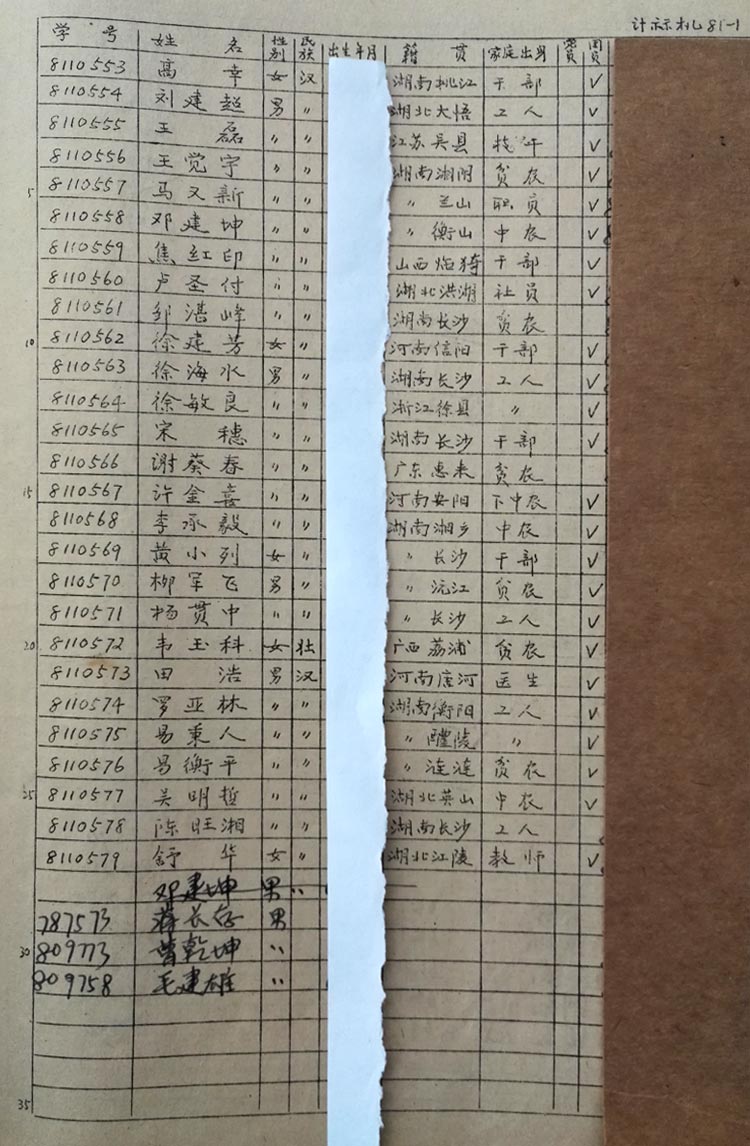 计 机81-1
学号 姓名 性别 民族 出生年月 籍贯 家庭出身 党员 团员
8110553 高幸 女 汉 湖南桃江 干部 ✓
8110554 刘建超 男 〃 湖北大悟 工人 ✓
8110555 王磊 〃 〃 江苏吴县 技干 ✓
8110556 王觉宇 〃 〃 湖南湘阴 贫农 ✓
5 8110557 马又新 〃 〃 〃 兰山 职员 ✓
8110558 邓建坤 〃 〃 〃 衡山 中农 ✓
8110559 焦红印 〃 〃 山西临猗 干部 ✓
8110560 卢圣付 〃 〃 湖北洪湖 社员 ✓
8110561 邹湛峰 〃 〃 湖南长沙 贫农
10 8110562 徐建芳 女 〃 河南信阳 干部 ✓
8110563 徐海水 男 〃 湖南长沙 工人 ✓
8110564 徐敏良 〃 〃 浙江 县 〃 ✓
8110565 宋穗 〃 〃 湖南长沙 干部 ✓
8110566 谢葵春 〃 〃 广东惠来 贫农
15 8110567 许金喜 〃 〃 河南安阳 下中农 ✓
8110568 李承毅 〃 〃 湖南湘乡 中农 ✓
8110569 黄小列 女 〃 〃 长沙 干部 ✓
8110570 柳军飞 男 〃 〃 沅江 贫农 ✓
8110571 杨贯中 〃 〃 〃 长沙 工人 ✓
20 8110572 韦玉科 女 壮 广西荔浦 贫农 ✓
8110573 田浩 男 汉 河南唐河 医生 ✓
8110574 罗亚林 〃 〃 湖南衡阳 工人 ✓
8110575 易秉人 〃 〃 〃 醴陵 〃 ✓
8110576 易衡平 〃 〃 〃 涟涟 贫农 ✓
25 8110577 吴明哲 〃 〃 湖北英山 中农 ✓
8110578 陈旺湘 〃 〃 湖南长沙 工人
8110579 舒华 女 〃 湖北江陵 教师 ✓
邓建坤 男 〃
787573 蒋长存 男
30 809773 曾乾坤 〃
809758 毛建雄 〃
35